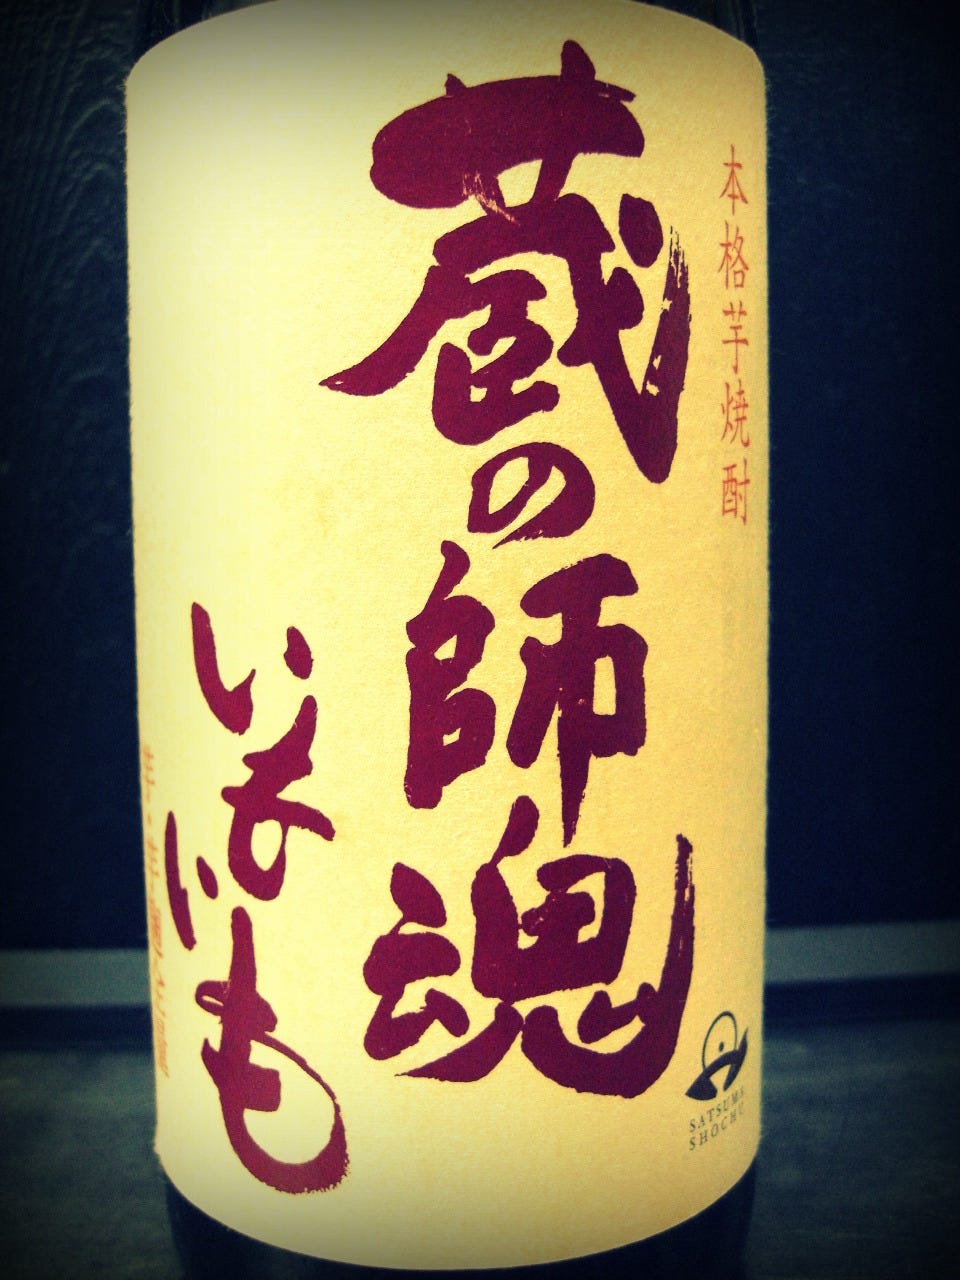 本格芋焼酎
蔵の師魂
いもいも
SATSUMA
SHOCHU